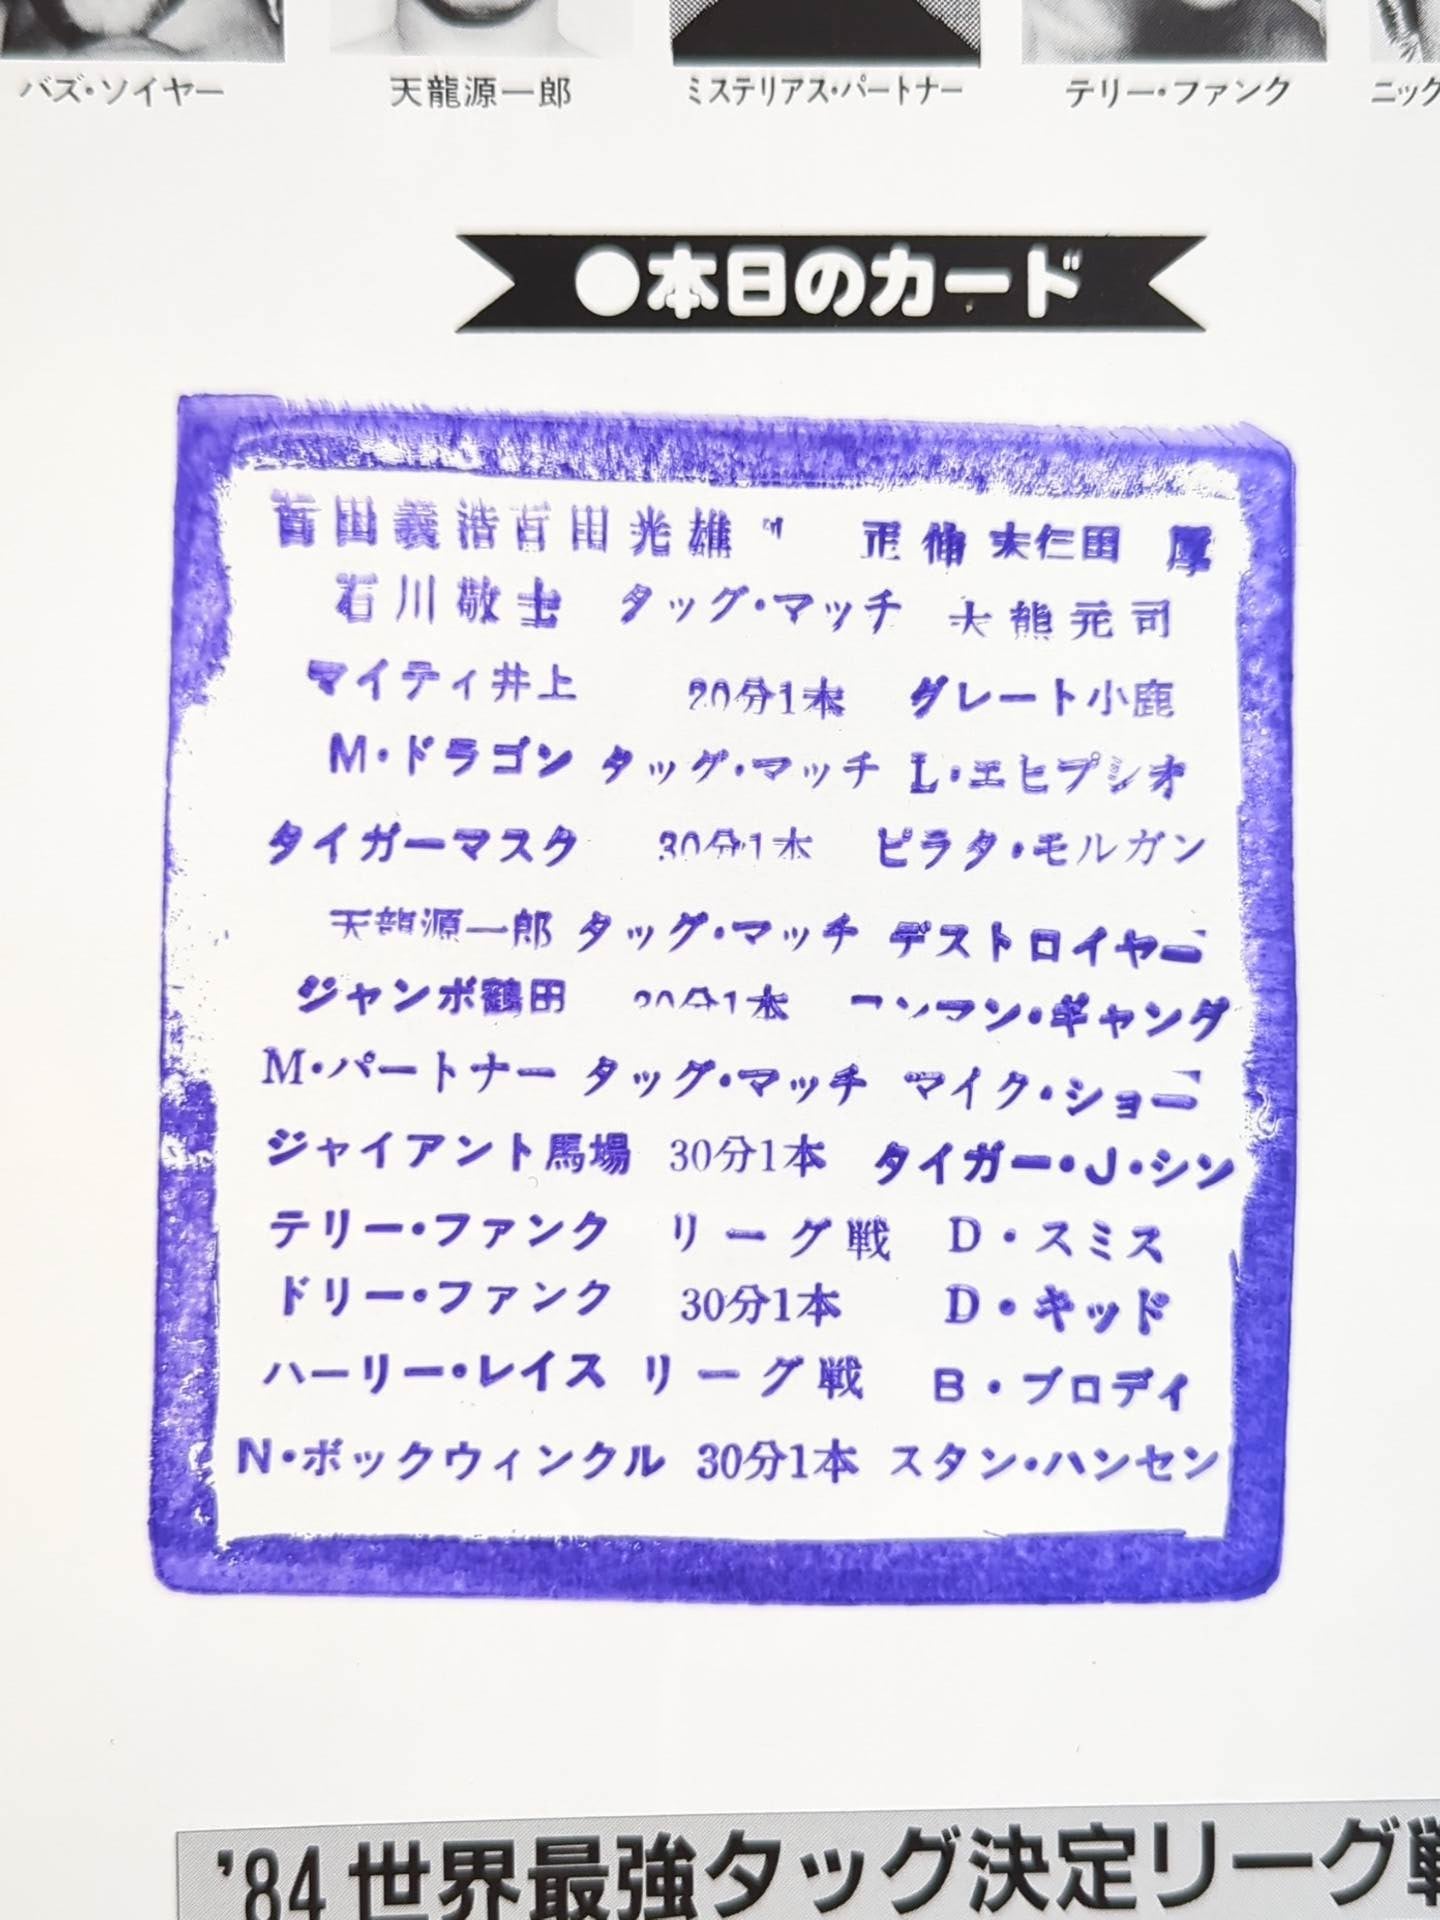 バズ・ソイヤー 天龍源一郎 ミステリアス・パートナー テリー・ファンク ニック
●本日のカード
百田義浩 百田光雄 正伸 大仁田 厚
石川敬士 タッグ・マッチ 大熊元司
マイティ井上 20分1本 グレート小鹿
M・ドラゴン タッグ・マッチ L・エヒプシオ
タイガーマスク 30分1本 ピラタ・モルガン
天龍源一郎 タッグ・マッチ デストロイヤー
ジャンボ鶴田 30分1本 ワンマン・ギャング
M・パートナー タッグ・マッチ マイク・ショー
ジャイアント馬場 30分1本 タイガー・J・シン
テリー・ファンク リーグ戦 D・スミス
ドリー・ファンク 30分1本 D・キッド
ハーリー・レイス リーグ戦 B・ブロディ
N・ボックウィンクル 30分1本 スタン・ハンセン
'84世界最強タッグ決定リーグ戦